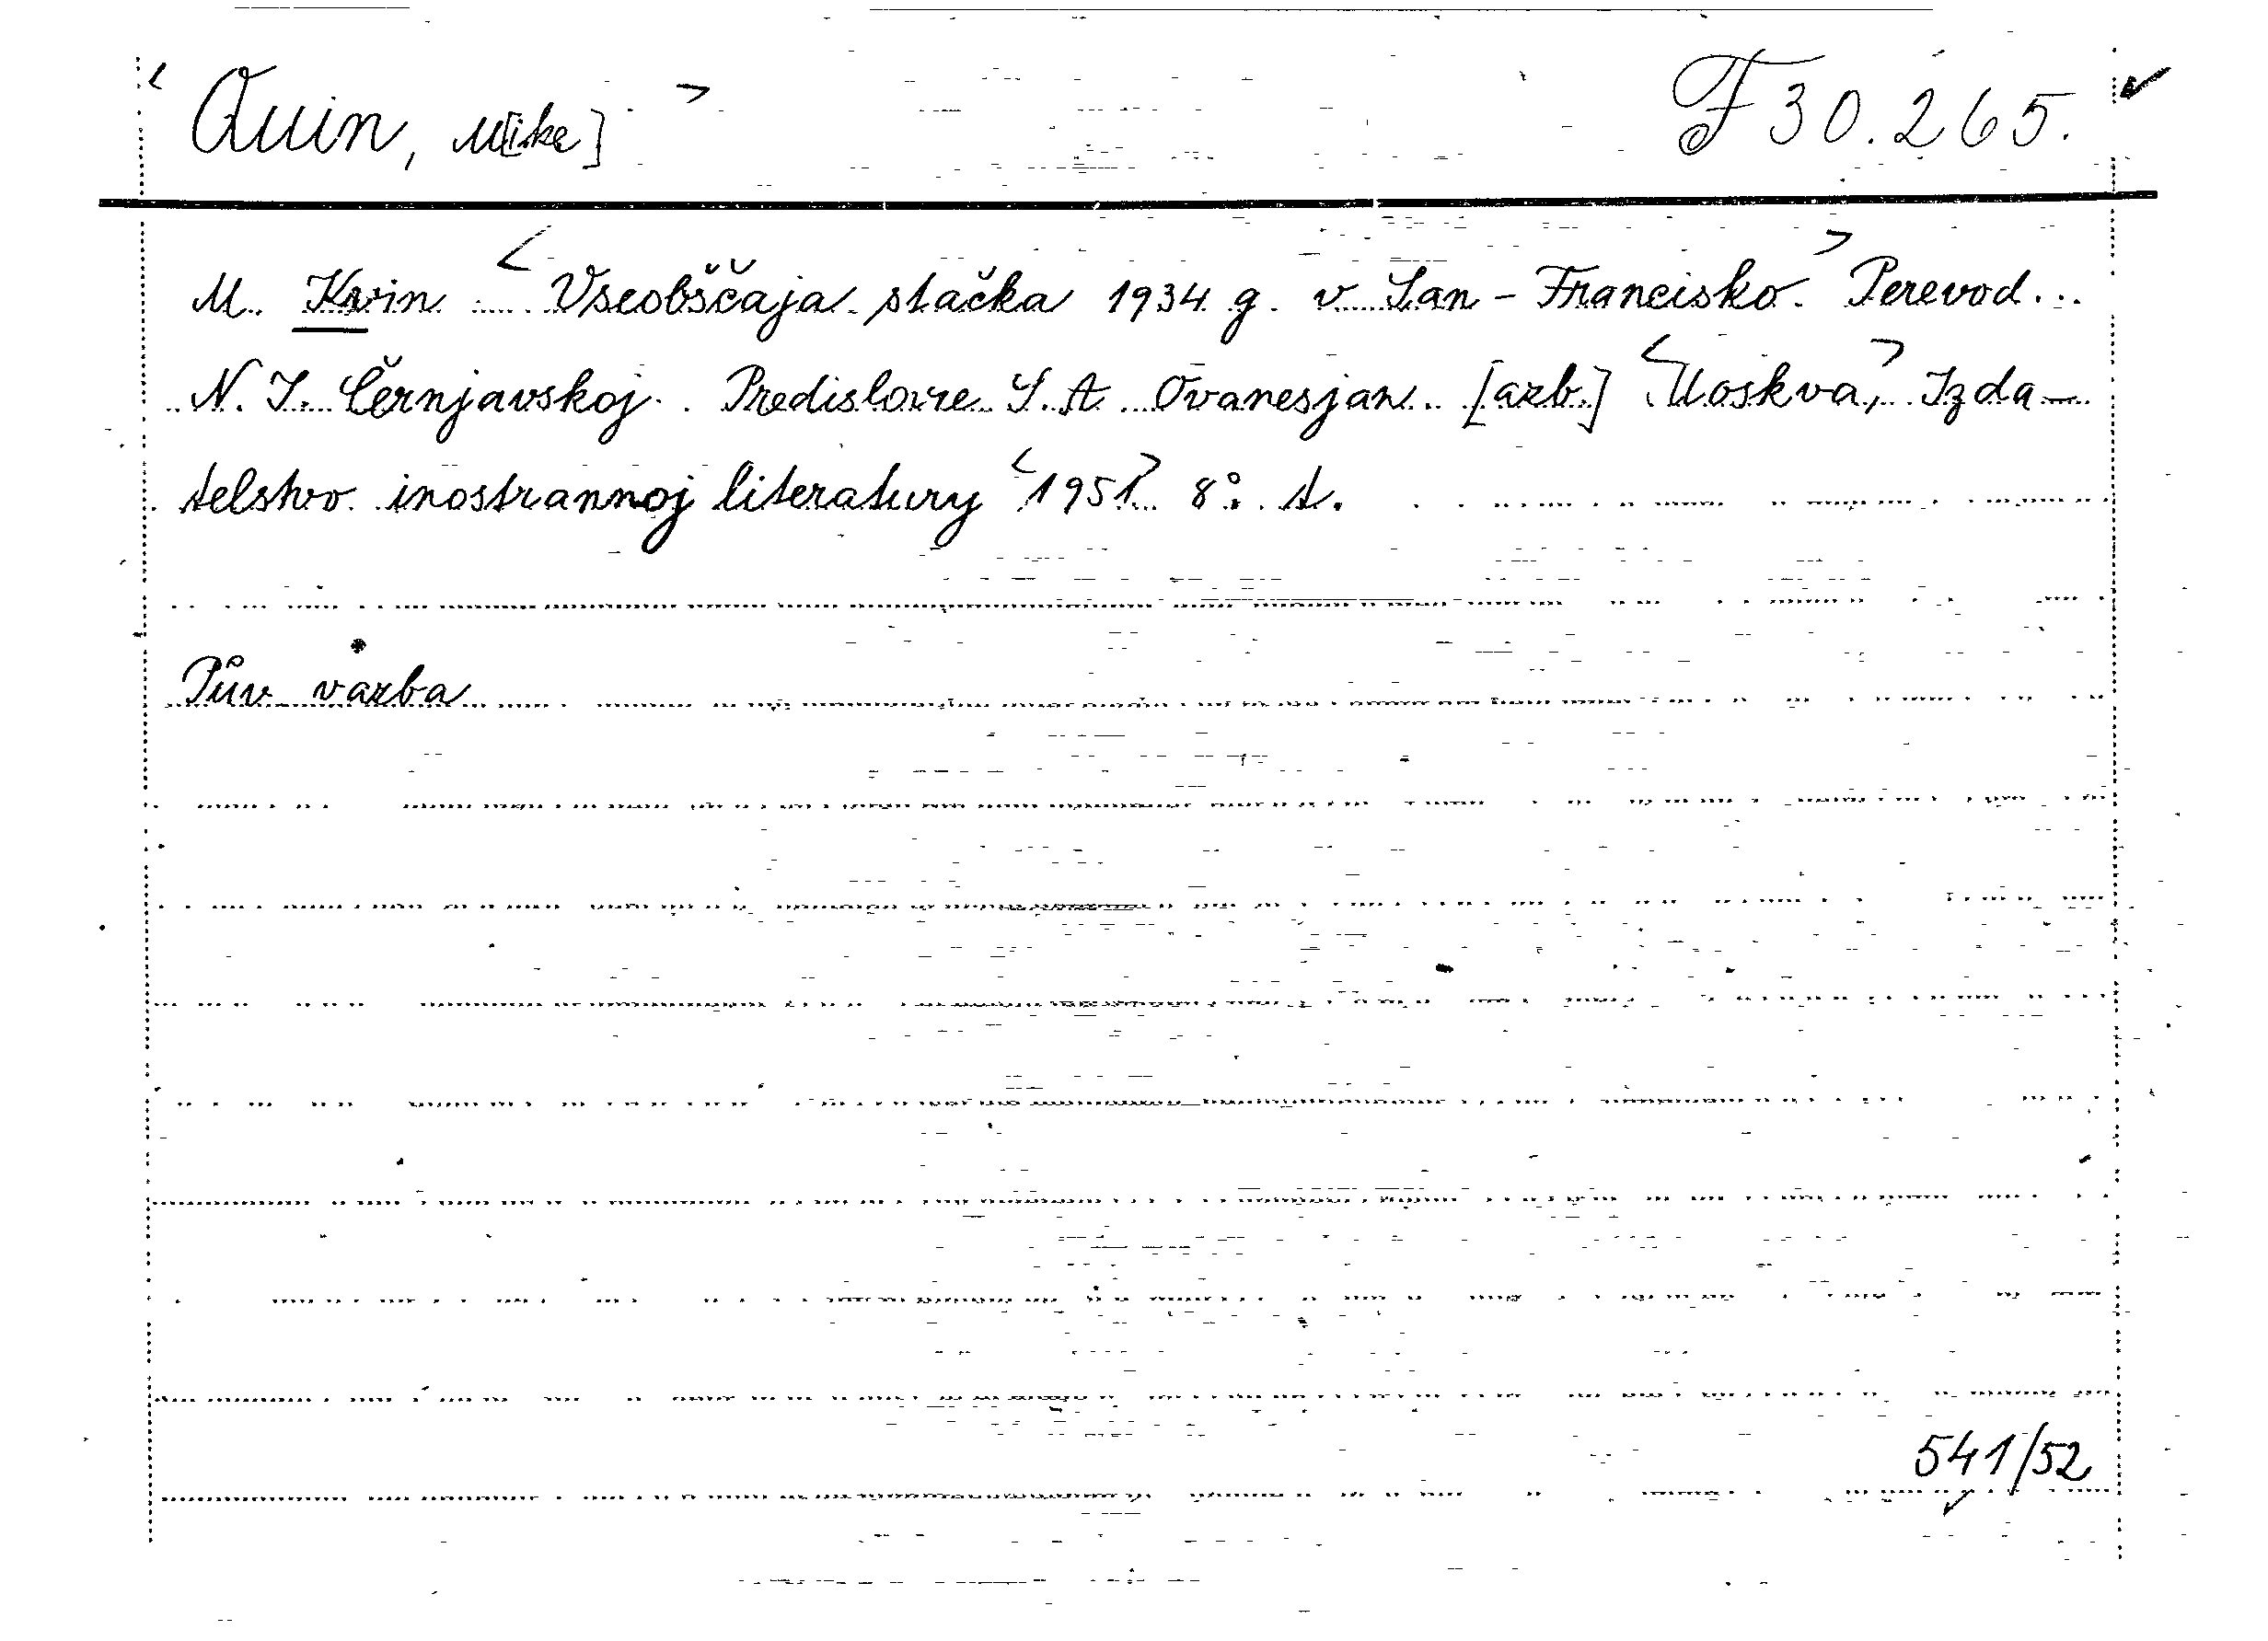 < Quin, M[ike] > F 30.265.
M. Kvin < Vseobščaja stačka 1934 g. v San-Francisko. > Perevod...
N. I. Černjavskoj. Predislovie S. A. Ovanesjan. [azb.] < Moskva, > Izda-
telstvo inostrannoj literatury < 1951 > 8°.
Pův. vazba
541/52